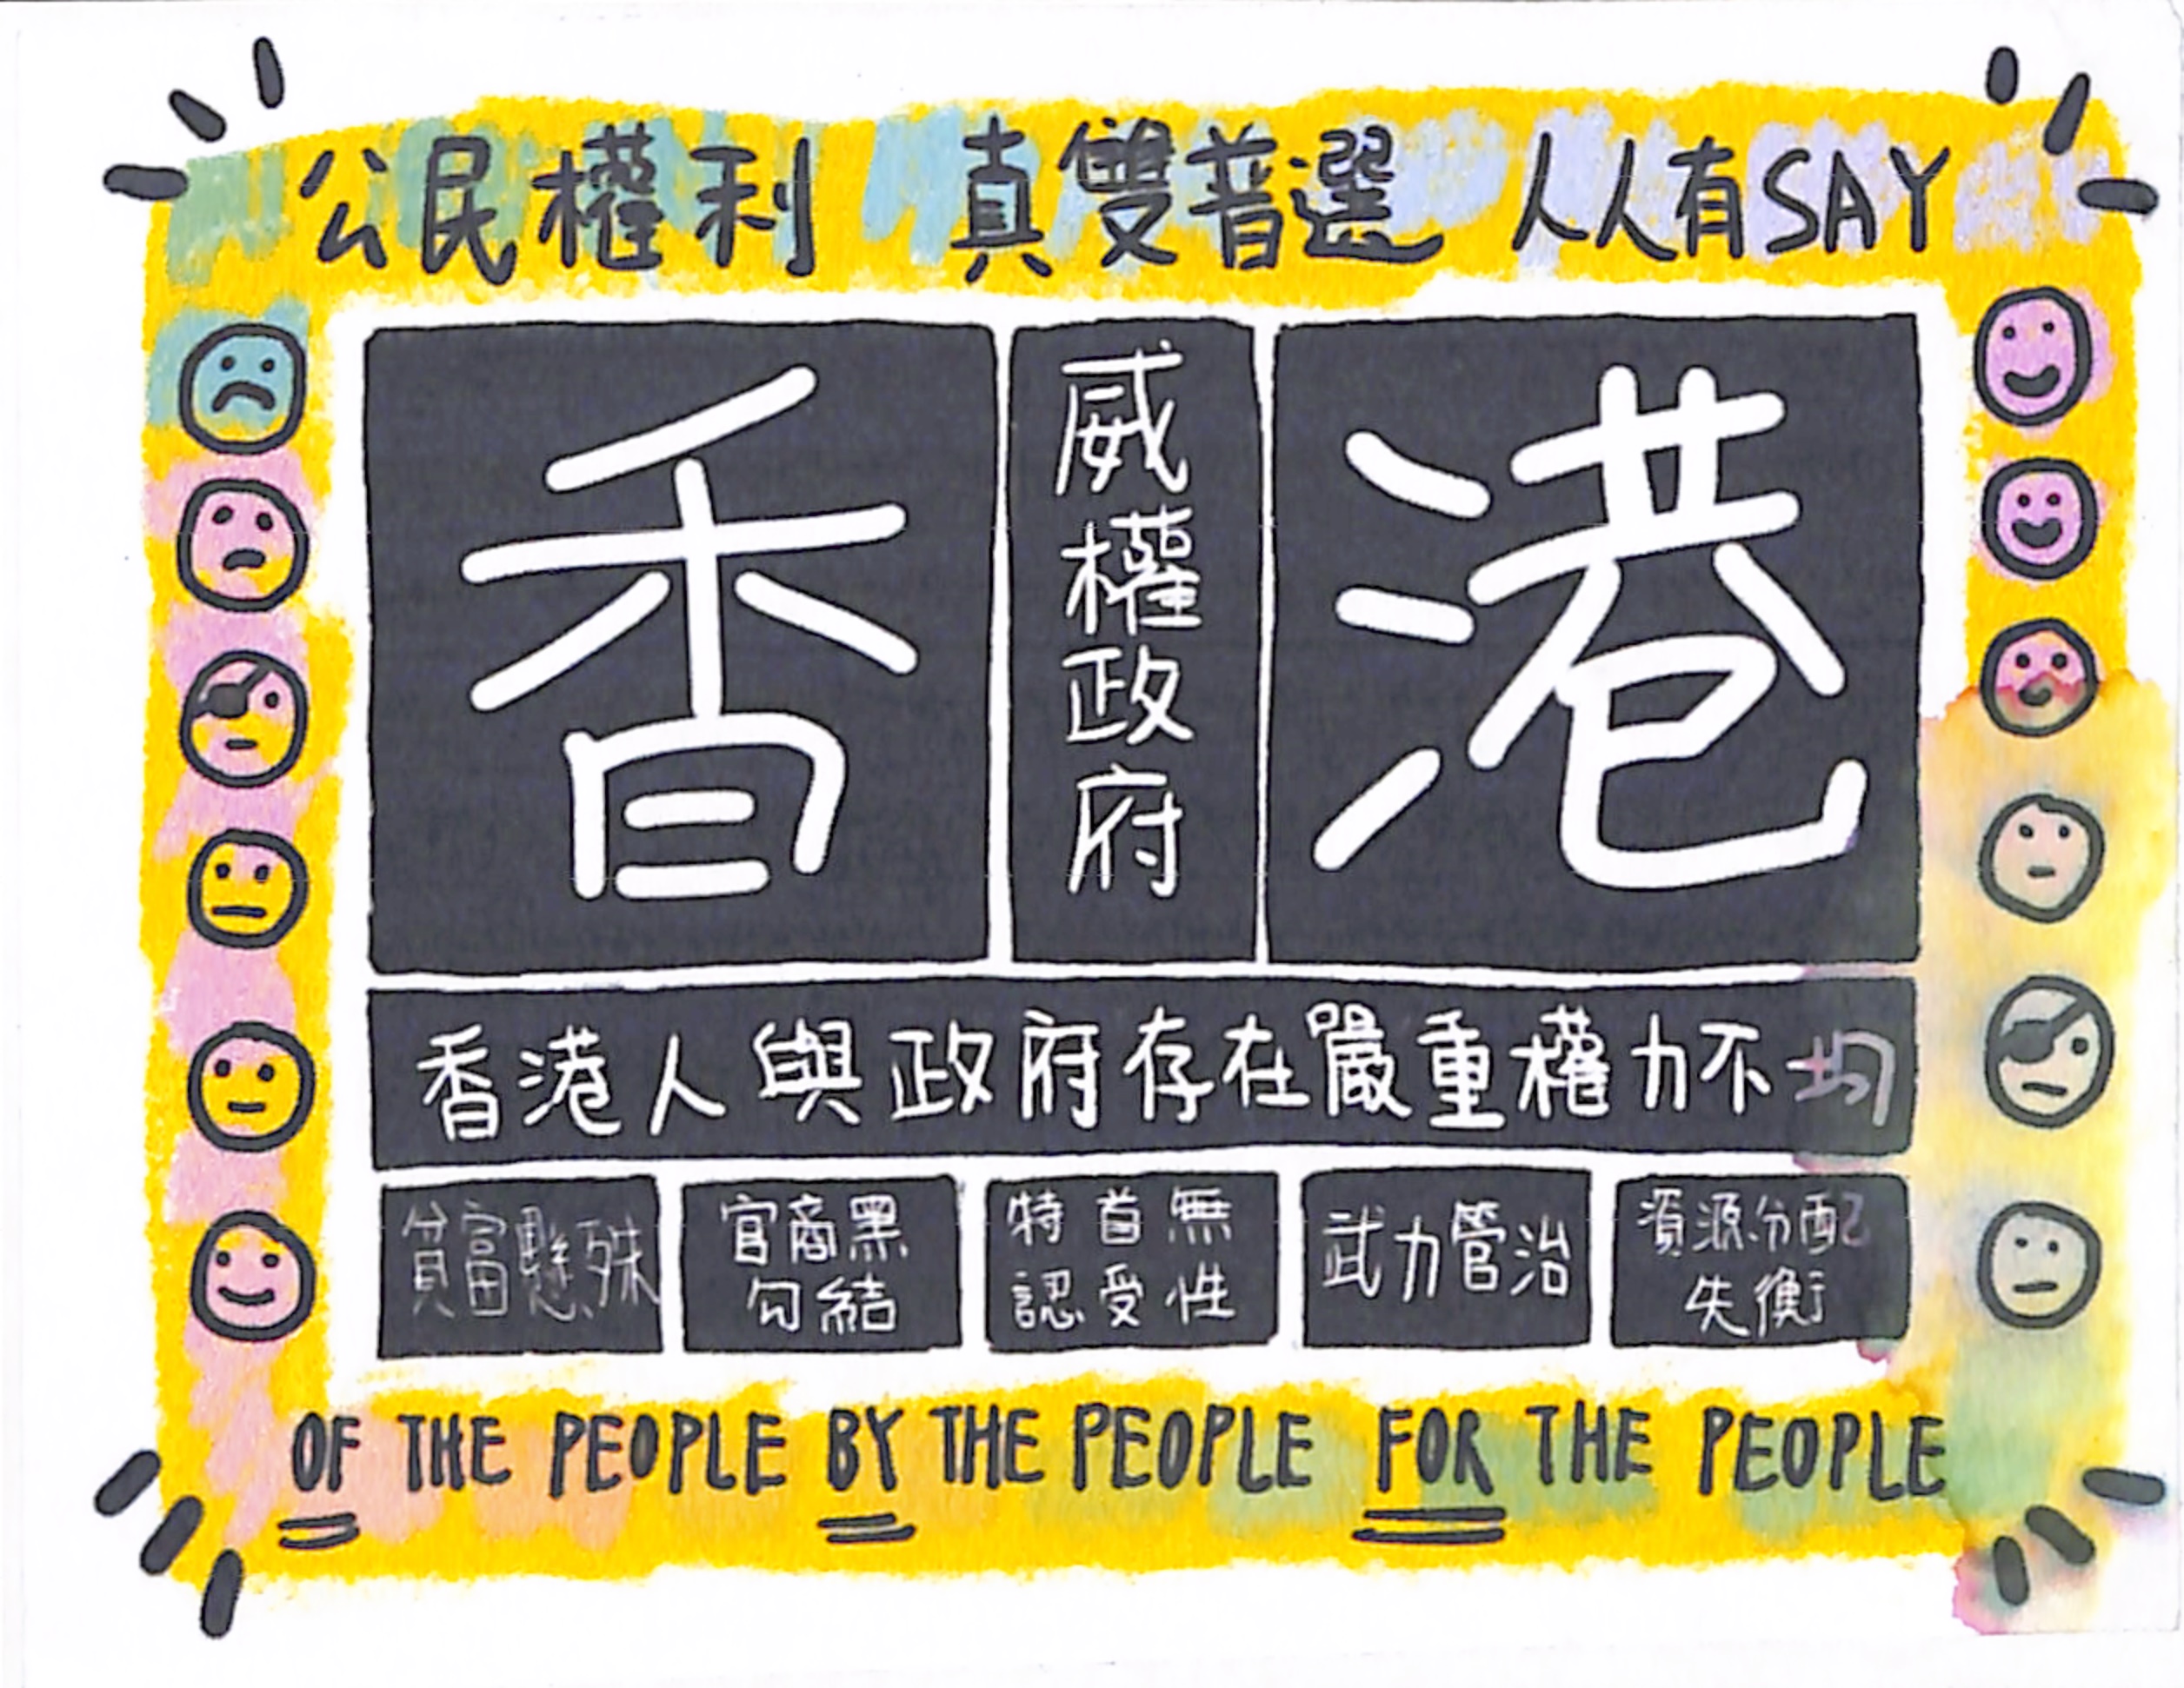 公民權利 真雙普選 人人有SAY
香港
威權政府
香港人與政府存在嚴重權力不均
貧富懸殊
官商黑
勾結
特首無
認受性
武力管治
資源分配
失衡
OF THE PEOPLE BY THE PEOPLE FOR THE PEOPLE